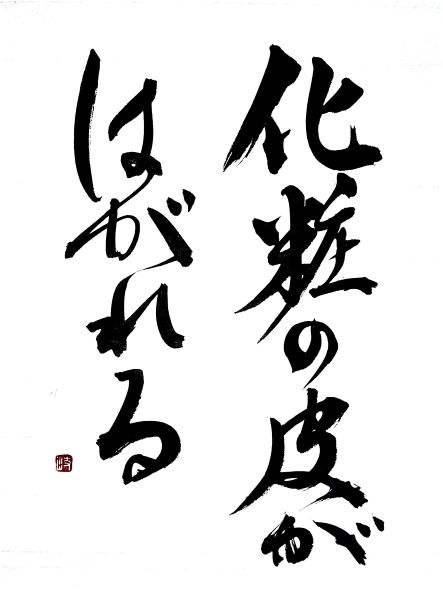 化粧の皮が
はがれる